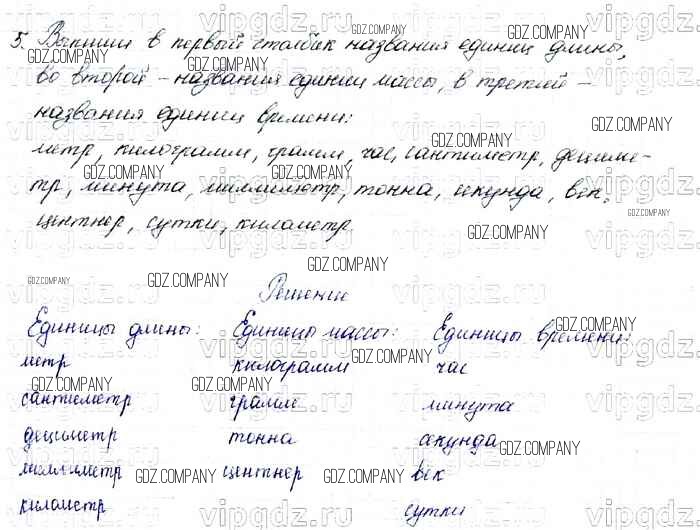 5. Выпиши в первый столбик названия единиц длины,
во второй – названия единиц массы, в третий –
названия единиц времени:
метр, килограмм, грамм, час, сантиметр, дециме-
тр, минута, миллиметр, тонна, секунда, век,
центнер, сутки, километр
Решение
Единицы длины: Единицы массы: Единицы времени:
метр килограмм час
сантиметр грамм минута
дециметр тонна секунда
миллиметр центнер век
километр сутки
GDZ.COMPANY
vipgdz.ru